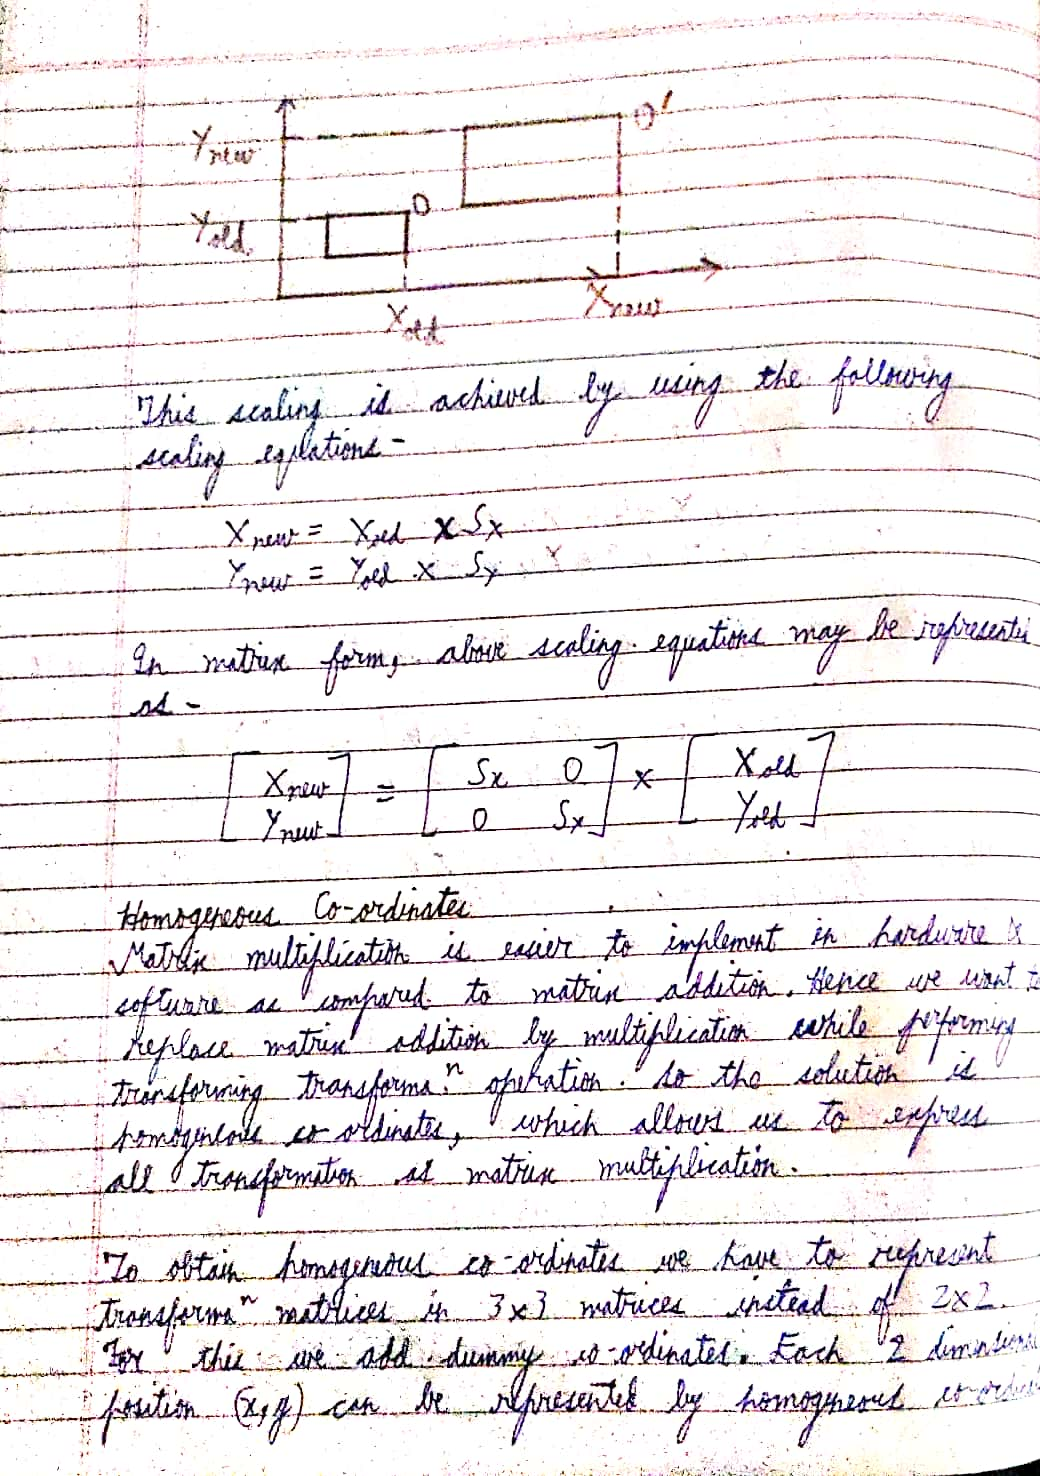 Ynew
O'
Yold.
O
Xold
Xnew
This scaling is achieved by using the following
scaling equations -
Xnew = Xold x Sx
Ynew = Yold x Sy
In matrix form, above scaling equations may be
as -
[Xnew] = [Sx 0] x [Xold]
[Ynew] [0 Sx] [Yold]
Homogeneous Co-ordinates
Matrix multiplication is easier to implement in hardware &
software as compared to matrix addition. Hence we want
replace matrix addition by multiplication while performing
transforming transformaⁿ operation. So the solution is
homogeneous co-ordinates, which allows us to express
all transformation as matrix multiplication.
To obtain homogeneous co-ordinates we have to represent
transformaⁿ matrices in 3x3 matrices instead of 2x2.
For this we add dummy co-ordinates. Each 2
position (x,y) can be represented by homogeneous